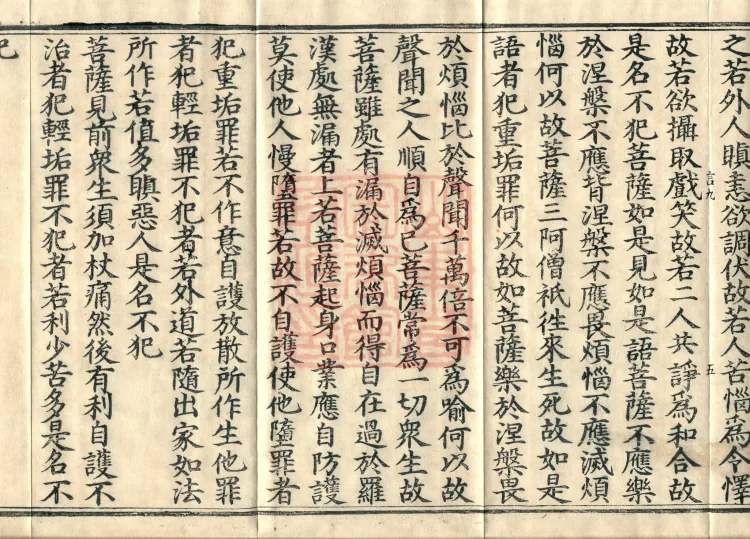 之若外人瞋恚欲調伏故若人苦惱為令懌
故若欲攝取戲笑故若二人共諍為和合故
言九
五
是名不犯菩薩如是見如是語菩薩不應樂
於涅槃不應背涅槃不應畏煩惱不應滅煩
惱何以故菩薩三阿僧祇徃來生死故如是
語者犯重垢罪何以故如菩薩樂於涅槃畏
於煩惱比於聲聞千萬倍不可為喻何以故
聲聞之人順自為己菩薩常為一切衆生故
菩薩雖處有漏於滅煩惱而得自在過於羅
漢處無漏者上若菩薩起身口業應自防護
莫使他人慢墮罪若故不自護使他墮罪者
犯重垢罪若不作意自護放散所作生他罪
者犯輕垢罪不犯者若外道若隨出家如法
所作若值多瞋惡人是名不犯
菩薩見前衆生須加杖痛然後有利自護不
治者犯輕垢罪不犯者若利少苦多是名不
犯